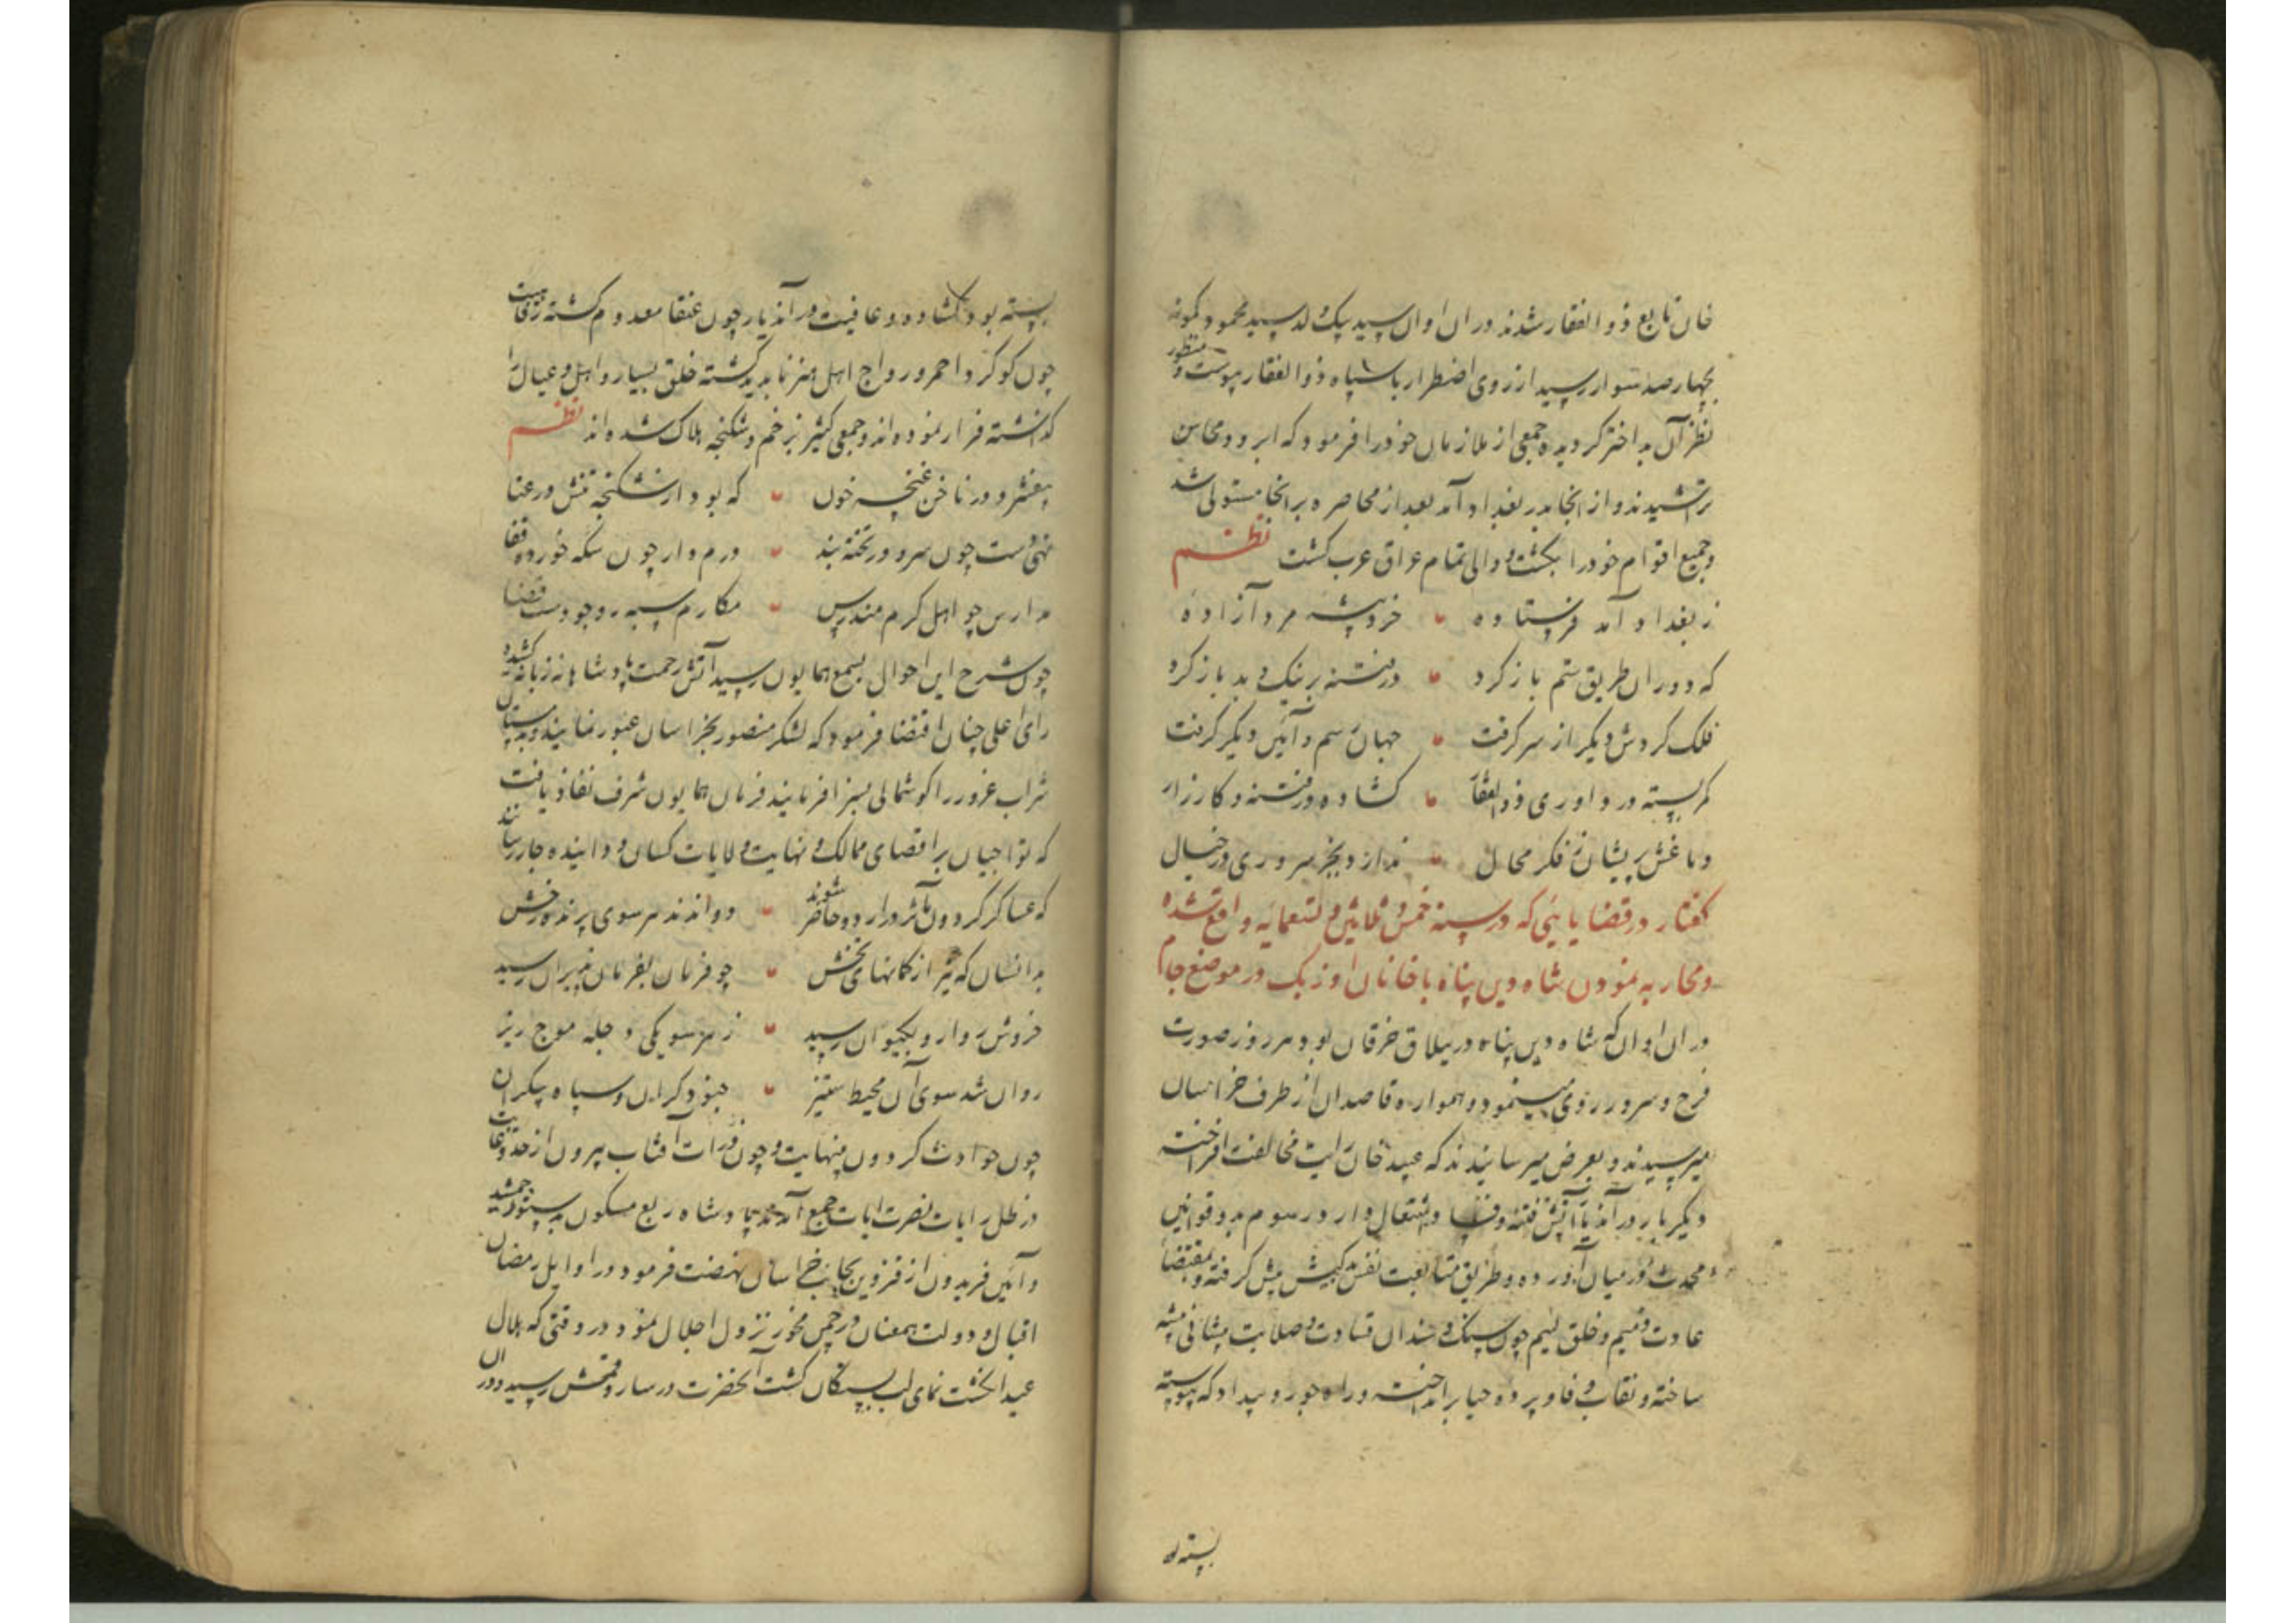 خان تابع ذوالفقار شدند در ان اوان سید بیک ولد سید محمود کمونه
بچهار صد سوار رسید از روی اضطرار با سپاه ذوالفقار پیوست و منظور
نظر آن بد اختر کردیده جمعی از ملازمان خود را فرمود که ابرو و محاسن
تراشیدند و از انجا بدر بغداد آمد بعد از محاصره بر انجا مستولی شد
و جمیع اقوام خود را بکشت و والی تمام عراق عرب کشت نظم
ز بغداد آمد فرستاده خردپیشه مرد آزاده
که دوران طریق ستم باز کرد در فتنه بر نیک و بد باز کرد
فلک کردش دیکر از سر کرفت جهان رسم و آئین دیکر کرفت
کمر بسته در داوری ذوالفقار کشاده در فتنه و کارزار
دماغش پریشان ز فکر محال ندارد بجز سروری در خیال
کفتار در قضایائی که در سنه خمس و ثلاثین و تسعمایه واقع شده
و محاربه نمودن شاه دین پناه با خانان اوزبک در موضع جام
در ان اوان که شاه دین پناه در ییلاق خرقان بود هر روز صورت
فرح و سرور روی مینمود و همواره قاصدان از طرف خراسان
میرسیدند و بعرض میرسانیدند که عبید خان رایت مخالفت افراخته
دیکر بار در آن دیار آتش فتنه و فساد اشتعال دارد و رسوم بد و قوانین
محدث در میان آورده و طریق متابعت نفس بدکیش پیش کرفته و بمقتضا
عادت ذمیم و خلق لئیم چون سنک و سندان قساوت و صلابت پیشانی پیشه
ساخته و نقاب وفا و پرده حیا برانداخته و راه جور و بیداد که پیوسته
بسته بود
بسته بود کشاده و عافیت در آن دیار چون عنقا معدوم کشته رفاهیت
چون کوکرد احمر و رواج اهل هنر ناپدید کشته خلق بسیار و اهل و عیال را
کذاشته فرار نموده اند و جمعی کثیر بزخم و شکنجه هلاک شده اند نظم
بیفشرد در ناخن غنچه خون که بود از شکنجه تنش در عنا
تهی دست چون سرو در تخته بند درم دار چون سکه خورده قفا
مدارس چو اهل کرم مندرس مکارم سیه رو چو دست قضا
چون شرح این احوال بسمع همایون رسید آتش رحمت پادشاهانه زبانه کشیده
رای اعلی چنان اقتضا فرمود که لشکر منصور بخراسان عبور نمایند و مستان
شراب غرور را کوشمالی بسزا فرمایند فرمان همایون شرف نفاذ یافت
که تواجیان باقصای ممالک و نهایت ولایات کسان دوانیده جار رسانند
که عساکر کردون مآثر در اردو حاضر شوند دواندند هر سوی پرنده رخش
بدانسان که تیر از کمانهای بخش چو فرمان بفرمان پذیران رسید
خروش روارو بکیوان رسید ز هر سو یکی دجله موج ریز
روان شد سوی آن محیط ستیز جنود کران و سپاه بیکران
چون حوادث کردون بینهایت و چون ذرات آفتاب بیرون از حد و غایت
در ظل رایات نصرت ایات جمع آمدند پادشاه ربع مسکون بدستور جمشید
و آئین فریدون از قزوین بجانب خراسان نهضت فرمود در اوایل رمضان
اقبال و دولت همعنان در چمن فخور نزول اجلال نمود در وقتی که هلال
عید انکشت نمای لب بستکان کشت آنحضرت در ساروقمش رسید در ان